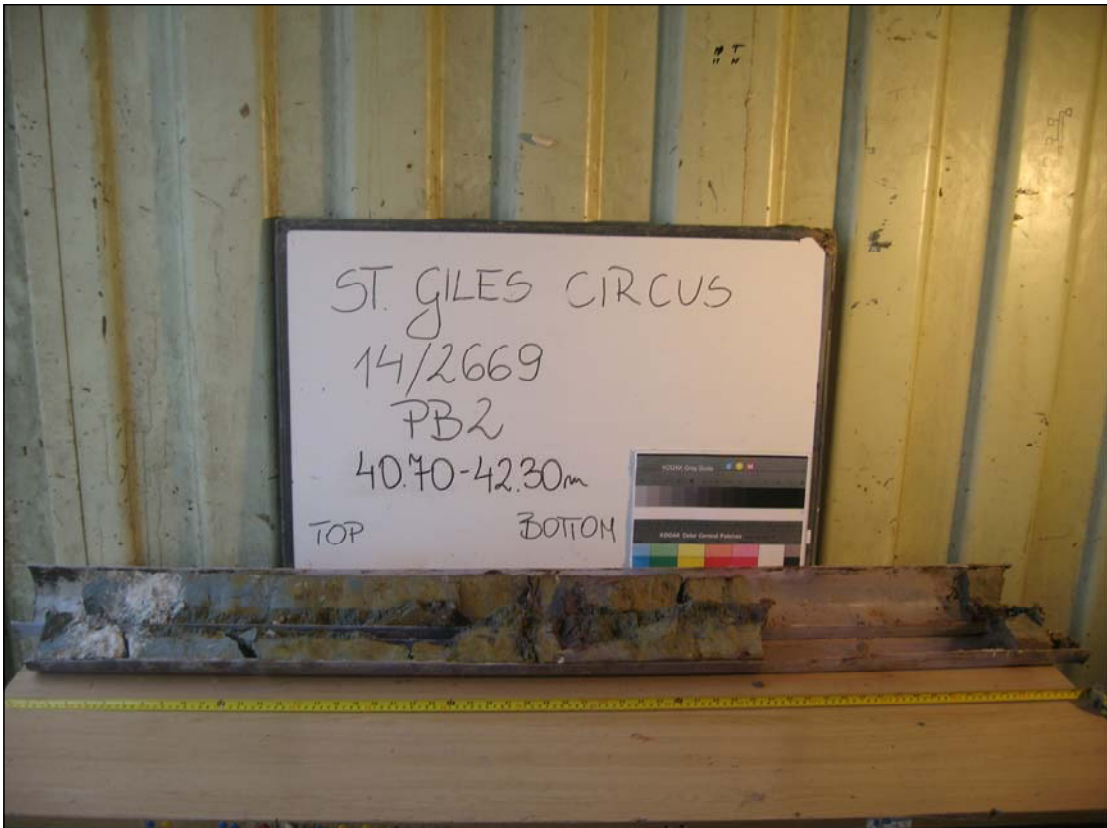 ST. GILES CIRCUS
14/2669
PB2
40.70-42.30m
TOP BOTTOM
KODAK Gray Scale
KODAK Color Control Patches